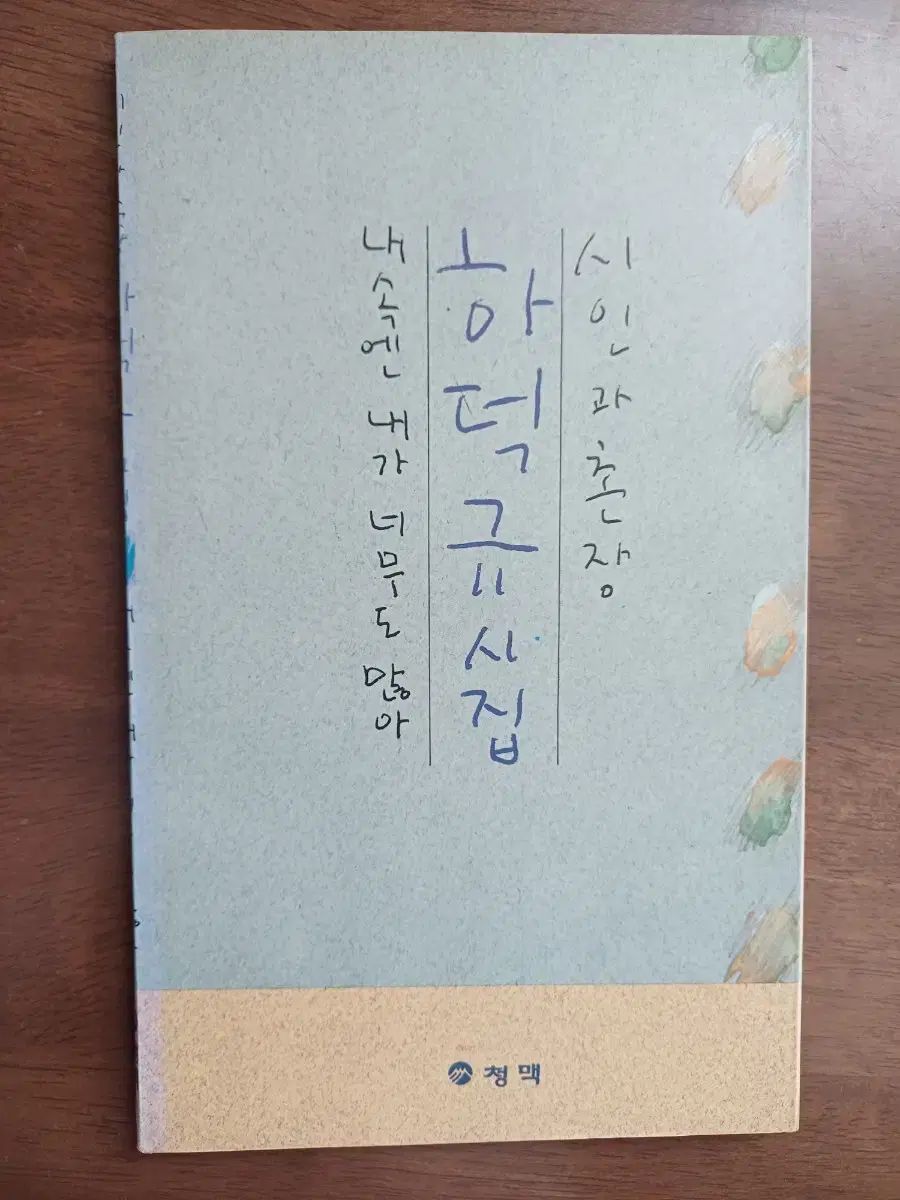 시인과촌장
하덕규시집
내 속엔 내가 너무도 많아
청맥